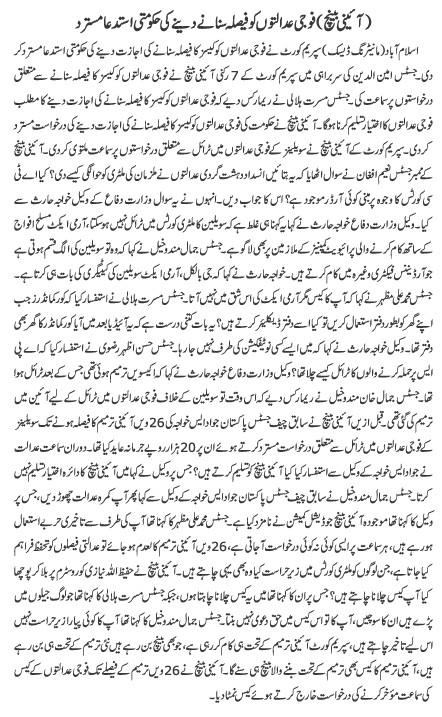 (آئینی بینچ) فوجی عدالتوں کو فیصلہ سنانے دینے کی حکومتی استدعا مسترد
اسلام آباد (مانیٹرنگ ڈیسک) سپریم کورٹ نے فوجی عدالتوں کو کیسز کا فیصلہ سنانے کی اجازت دینے کی استدعا مسترد کر
دی۔ جسٹس امین الدین کی سربراہی میں سپریم کورٹ کے 7 رکنی آئینی بینچ نے فوجی عدالتوں میں سویلینز کے ٹرائل سے متعلق
درخواستوں پر سماعت کی۔ جسٹس مسرت ہلالی نے ریمارکس دیے کہ فوجی عدالتوں کو کیسز کا فیصلہ سنانے کی اجازت دینے کا مطلب
فوجی عدالتوں کا اختیار تسلیم کرنا ہوگا۔ آئینی بینچ نے حکومت کی فوجی عدالتوں کو کیسز کا فیصلہ سنانے کی اجازت دینے کی درخواست مسترد
کر دی۔ سپریم کورٹ کے آئینی بینچ نے سویلینز کے فوجی عدالتوں میں ٹرائل سے متعلق درخواستوں پر سماعت ملتوی کر دی۔ آئینی بینچ
کے ممبر جسٹس نعیم افغان نے سوال اٹھایا کہ یہ بتائیں انسداد دہشت گردی عدالتوں نے ملزمان کی ملٹری کو حوالگی کیسے دی؟ کیا اے ٹی
سی کورٹس کا وجوہ پر مبنی کوئی آرڈر موجود ہے؟ اس کا جواب دیں۔ انہوں نے یہ سوال وزارت دفاع کے وکیل خواجہ حارث سے
کیا۔ وکیل وزارت دفاع خواجہ حارث نے کہا یہ کہنا ہی غلط ہے کہ سویلین کا ملٹری کورٹس میں ٹرائل نہیں ہو سکتا، آرمی ایکٹ مسلح افواج
کے ساتھ کام کرنے والی پرائیویٹ کمپنیز کے ملازمین پر بھی لاگو ہے۔ جسٹس جمال مندوخیل نے کہا کہ وہ تو سویلین کی الگ قسم ہوتی ہے
جو آرڈیننس فیکٹری وغیرہ میں کام کرتے ہیں۔ خواجہ حارث نے کہا کہ جی بالکل، آرمی ایکٹ سویلین کی کیٹیگری کی بات ہی کرتا ہے۔
جسٹس محمد علی مظہر نے کہا کہ آپ کا کیس مگر آرمی ایکٹ کی اس شق میں نہیں آتا۔ جسٹس مسرت ہلالی نے استفسار کیا کہ کور کمانڈرز جب
اپنے گھر کو بطور دفتر استعمال کریں تو کیا اسے دفتر ڈیکلیئر کرتے ہیں؟ یہ بات کتنی درست ہے کہ یہ آئیڈیا بعد میں آیا کور کمانڈر کا گھر بھی
دفتر تھا۔ وکیل خواجہ حارث نے کہا کہ میں ایسے کسی نوٹیفکیشن کی طرف نہیں جا رہا۔ جسٹس حسن اظہر رضوی نے استفسار کیا کہ اے پی
ایس پر حملہ کرنے والوں کا ٹرائل کیسے چلا تھا؟ وکیل وزارت دفاع خواجہ حارث نے کہا اکیسویں ترمیم ہوئی تھی جس کے بعد ٹرائل ہوا
تھا۔ جسٹس جمال خان مندوخیل نے ریمارکس دیے کہ اس وقت تو سویلین کے خلاف فوجی عدالتوں میں ٹرائل کے لیے آئین میں
ترمیم کی گئی تھی۔ قبل ازیں آئینی بینچ نے سابق چیف جسٹس پاکستان جواد ایس خواجہ کی 26 ویں آئینی ترمیم کا فیصلہ ہونے تک سویلینز
کے فوجی عدالتوں میں ٹرائل سے متعلق درخواست مسترد کرتے ہوئے ان پر 20 ہزار روپے جرمانہ عاید کیا تھا۔ دوران سماعت عدالت
نے جواد ایس خواجہ کے وکیل سے استفسار کیا کیا آئینی بینچ کو تسلیم کرتے ہیں؟ جس پر وکیل نے کہا میں آئینی بینچ کا دائرہ اختیار تسلیم نہیں
کرتا۔ جسٹس جمال مندوخیل نے سابق چیف جسٹس پاکستان جواد ایس خواجہ کے وکیل سے کہا پھر آپ کمرہ عدالت چھوڑ دیں، جس پر
وکیل کا کہنا تھا موجودہ آئینی بینچ جوڈیشل کمیشن نے نامزد کیا ہے۔ جسٹس محمد علی مظہر کا کہنا تھا آپ کی طرف سے تاخیری حربے استعمال
ہو رہے ہیں، ہر سماعت پر ایسی کوئی نہ کوئی درخواست آ جاتی ہے، 26 ویں آئینی ترمیم کالعدم ہو جائے تو عدالتی فیصلوں کو تحفظ فراہم
کیا جاتا ہے، جن لوگوں کو ملٹری کورٹس میں زیر حراست کیا وہ بھی یہی چاہتے ہیں۔ آئینی بینچ نے حفیظ اللہ نیازی کو روسٹرم پر بلا کر پوچھا
کیا آپ کیس چلانا چاہتے ہیں؟ جس پر ان کا کہنا تھا میں یہ کیس چلانا چاہتا ہوں، جبکہ جسٹس مسرت ہلالی کا کہنا تھا جو لوگ جیلوں میں
پڑے ہیں ان کا سوچیں، آپ کا تو اس کیس میں حق دعویٰ نہیں بنتا۔ جسٹس جمال مندوخیل کا کہنا تھا آپ کا کوئی پیارا زیر حراست نہیں
اس لیے تاخیر چاہتے ہیں، سپریم کورٹ آئینی ترمیم کے تحت ہی کام کر رہی ہے، جو بھی بینچ بن رہے ہیں نئی ترمیم کے تحت ہی بن رہے
ہیں، آئینی ترمیم کا کیس بھی ترمیم کے تحت بننے والا بینچ ہی سنے گا۔ آئینی بینچ نے 26 ویں ترمیم کے فیصلے تک فوجی عدالتوں کے کیس
کی سماعت مؤخر کرنے کی درخواست خارج کرتے ہوئے کیس نمٹا دیا۔